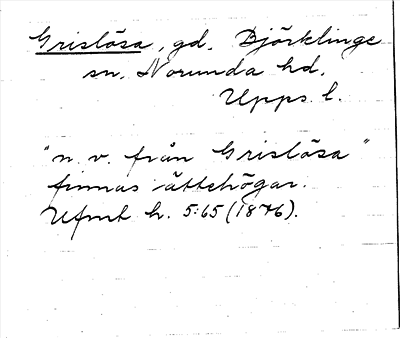 Grislösa, gd. Björklinge
sn. Norunda hd.
Upps. l.
"n. v. från Grislösa"
finnas ättehögar.
Ufmt h. 5:65 (1876).